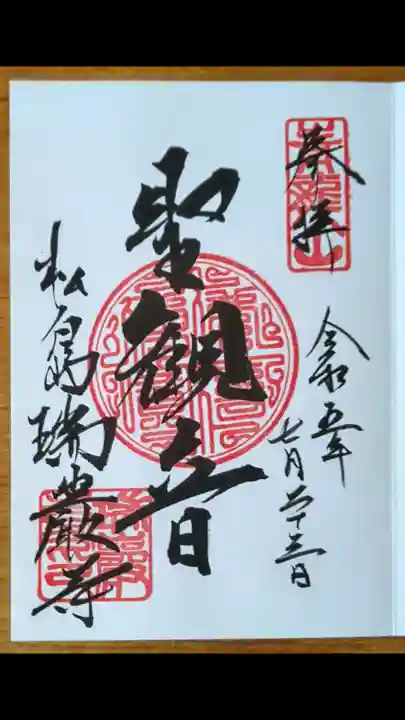 奉拝
令和五年
七月二十三日
聖観音
松島瑞巖寺